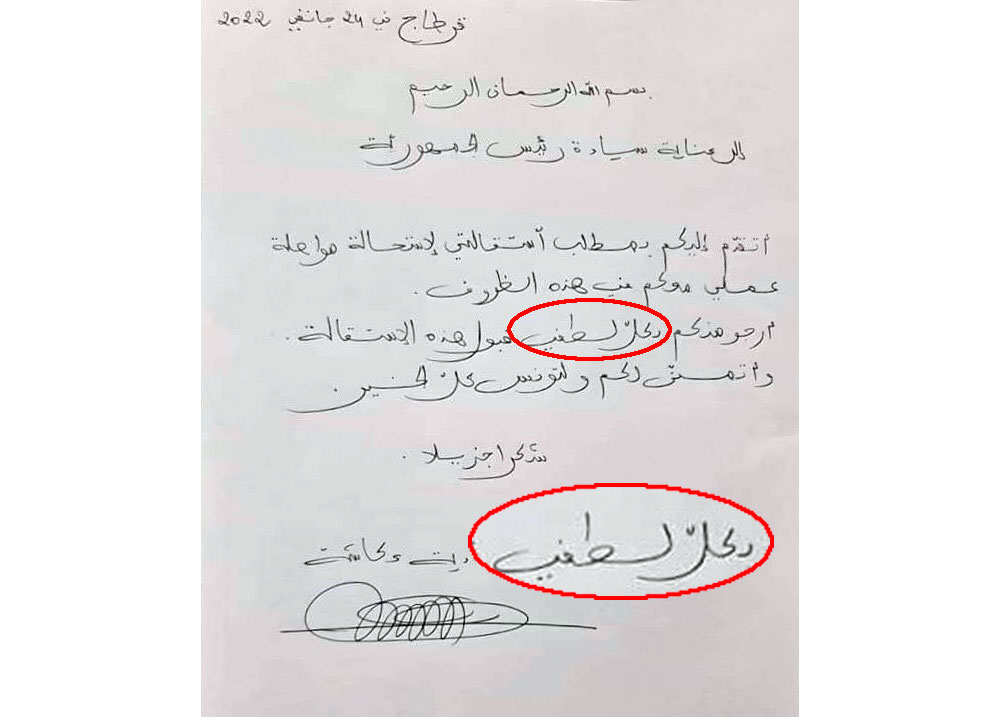 قرطاج في 24 جانفي 2022
بسم الله الرحمان الرحيم
إلى عناية سيادة رئيس الجمهورية
أتقدّم إليكم بمطلب أستقالتي لإستحالة مواصلة
عملي معكم في هذه الظروف.
أرجو منكم بكلّ لطف قبول هذه الإستقالة.
وأتمنّى لكم ولتونس كلّ الخير.
شكرا جزيلا.
بكلّ لطف